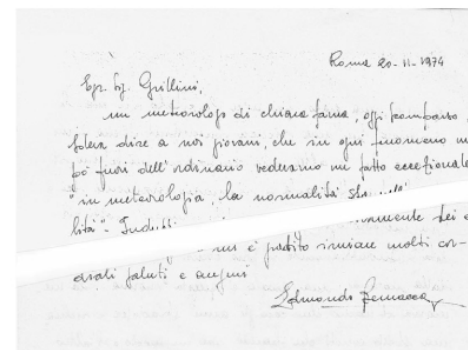 Roma 20-11-1974
Egr. Sig. Grillini,
un meteorologo di chiara fama, oggi scomparso,
soleva dire a noi giovani, che in ogni fenomeno
pò fuori dell'ordinario vedevamo un fatto eccezionale
"in meteorologia, la normalità
lità".
è gradito inviare molti cor-
diali saluti e auguri
Edmondo Bernacca